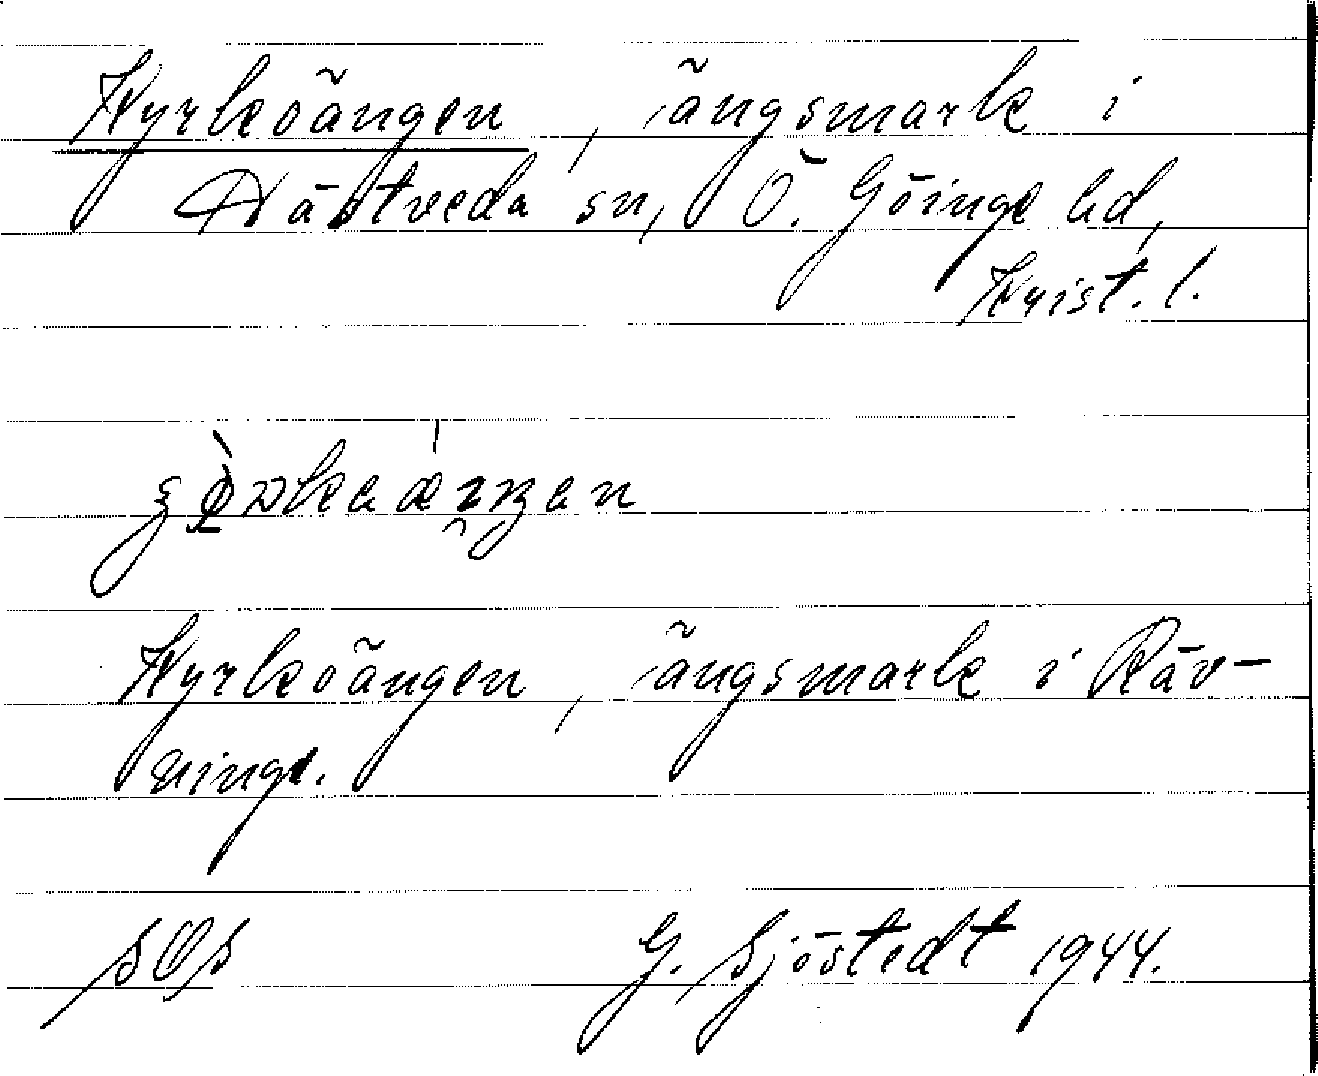 Kyrkoängen, ängsmark i
Nästveda sn, Ö. Göinge hd,
Krist. l.
Kyrkoängen, ängsmark i Räv-
ninge.
SOS G. Sjöstedt 1944.